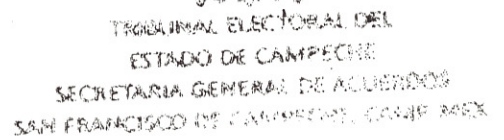 TRIBUNAL ELECTORAL DEL
ESTADO DE CAMPECHE
SECRETARIA GENERAL DE ACUERDOS
SAN FRANCISCO DE CAMPECHE, CAMP. MEX